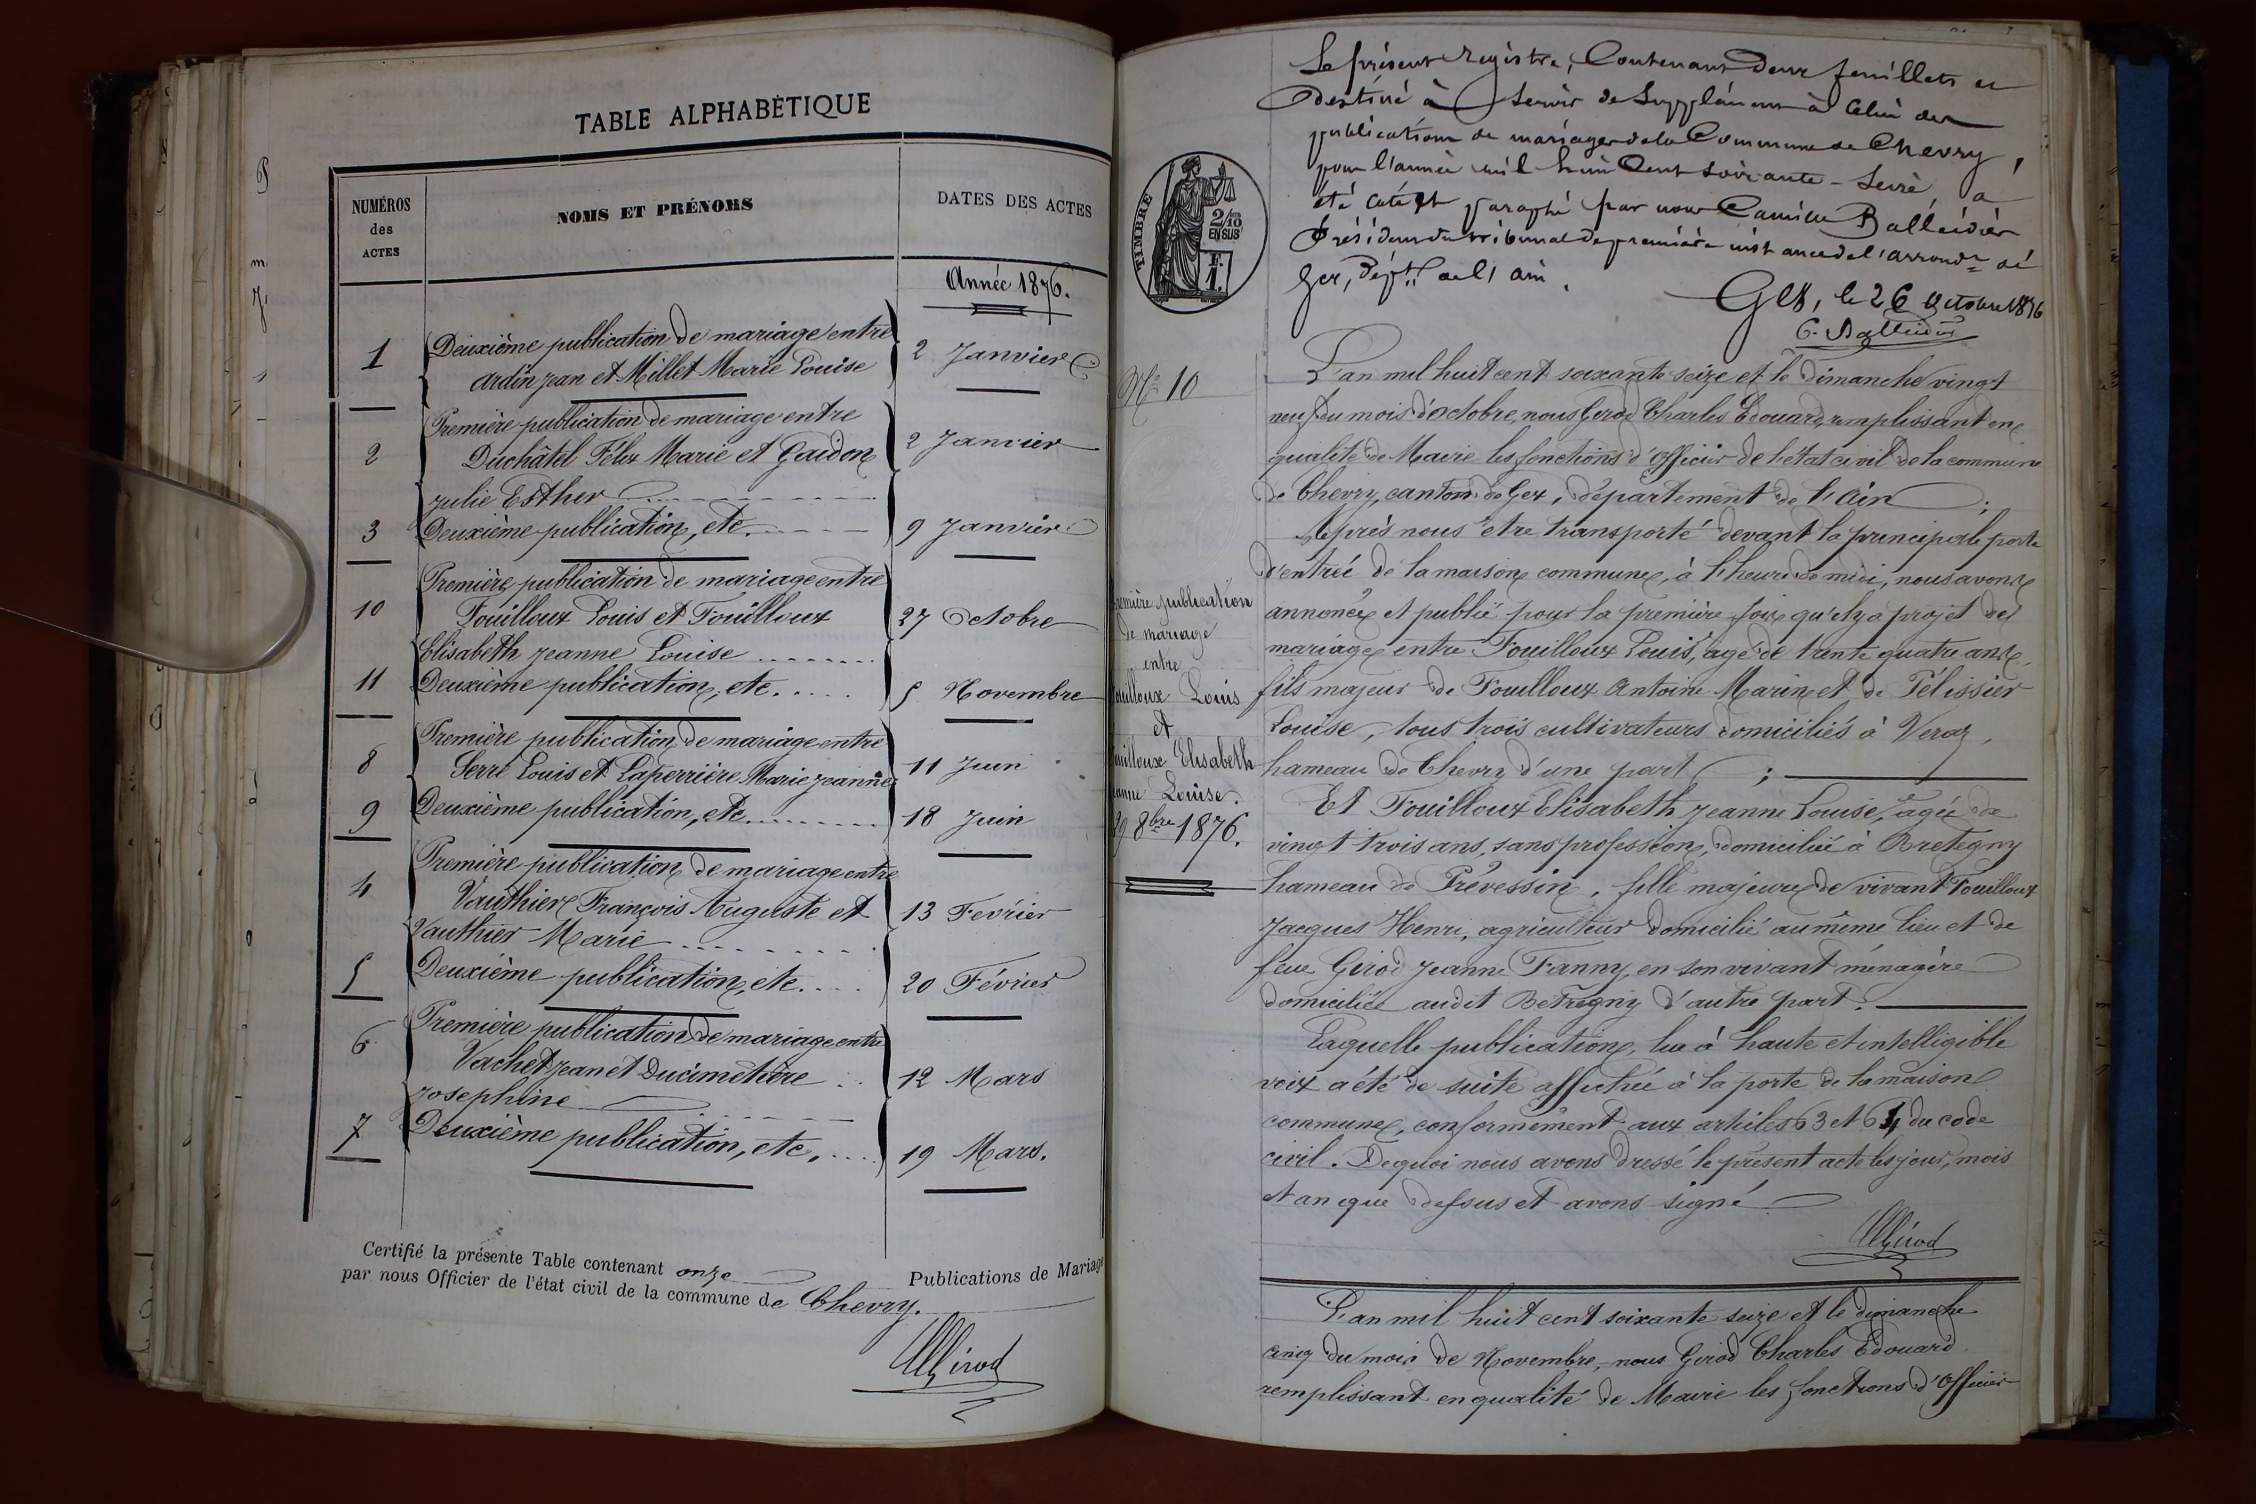 TABLE ALPHABÉTIQUE
NUMÉROS
des
ACTES
NOMS ET PRÉNOMS
DATES DES ACTES
Année 1876.
1
Deuxième publication de mariage entre
Ardin Jean et Millet Marie Louise
2 Janvier
Première publication de mariage entre
2
Duchâtel Félix Marie et Gaidon
2 Janvier
Julie Esther
3
Deuxième publication, etc.
9 Janvier
Première publication de mariage entre
10
Fouilloux Louis et Fouilloux
27 Octobre
Elisabeth Jeanne Louise
11
Deuxième publication, etc.
5 Novembre
Première publication de mariage entre
8
Serre Louis et Laperrière Marie Jeanne
11 Juin
9
Deuxième publication, etc
18 Juin
Première publication de mariage entre
4
Vauthier François Auguste et
13 Février
Vauthier Marie
5
Deuxième publication, etc.
20 Février
Première publication de mariage entre
6
Vachet Jean et Ducimetière
12 Mars
Josephine
7
Deuxième publication, etc.
19 Mars.
Certifié la présente Table contenant onze Publications de Mariage
par nous Officier de l'état civil de la commune de Chevry.
CGirod
Le présent registre, Contenant deux feuillets et
destiné à servir de Supplément à Celui des
publications de mariages de la Commune de Chevry,
pour l'année mil huit Cent soixante-Seize, a
été coté et paraphé par nous Camille Balleidier
Président du tribunal de première instance de l'arrondt de
Gex, Dépt de l'Ain.
Gex, le 26 Octobre 1876
C. Balleidier
TIMBRE
2/10
EN SUS
F.
1.
No 10
L'an mil huit cent soixante seize et le dimanche vingt
neuf du mois d'octobre, nous Girod Charles Edouard, remplissant en
qualité de Maire les fonctions d'officier de l'état civil de la commune
de Chevry, canton de Gex, département de l'Ain ;
Après nous être transporté devant la principale porte
d'entrée de la maison commune, à l'heure de midi, nous avons
annoncé et publié pour la première fois qu'il y a projet de
mariage entre Fouilloux Louis, agé de trente quatre ans,
fils majeur de Fouilloux Antoine Marin et de Pélissier
Louise, tous trois cultivateurs domiciliés à Veraz,
hameau de Chevry d'une part ;
Et Fouilloux Elisabeth Jeanne Louise, agée de
vingt trois ans, sans profession, domiciliée à Bretegny
hameau de Prévessin, fille majeure de vivant Fouilloux
Jacques Henri, agriculteur domicilié au même lieu et de
feue Girod Jeanne Fanny, en son vivant ménagère
domiciliée audit Bretegny d'autre part.
Laquelle publication, lue à haute et intelligible
voix a été de suite affichée à la porte de la maison
commune, conformément aux articles 63 et 64 du code
civil. De quoi nous avons dressé le présent acte les jour, mois
et an que dessus et avons signé
CGirod
emière publication
de mariage
entre
ouilloux Louis
et
ouilloux Elisabeth
eanne Louise.
29 8bre 1876.
L'an mil huit cent soixante seize et le dimanche
cinq du mois de Novembre, nous Girod Charles Edouard
remplissant en qualité de Maire les fonctions d'officier